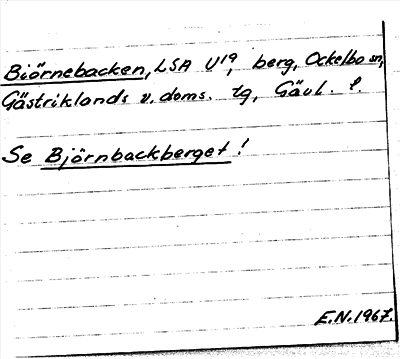 Biörnebacken, LSA U¹⁹, berg, Ockelbo sn,
Gästriklands v. doms. tg, Gävl. l.
Se Björnbackberget!
E.N. 1967.